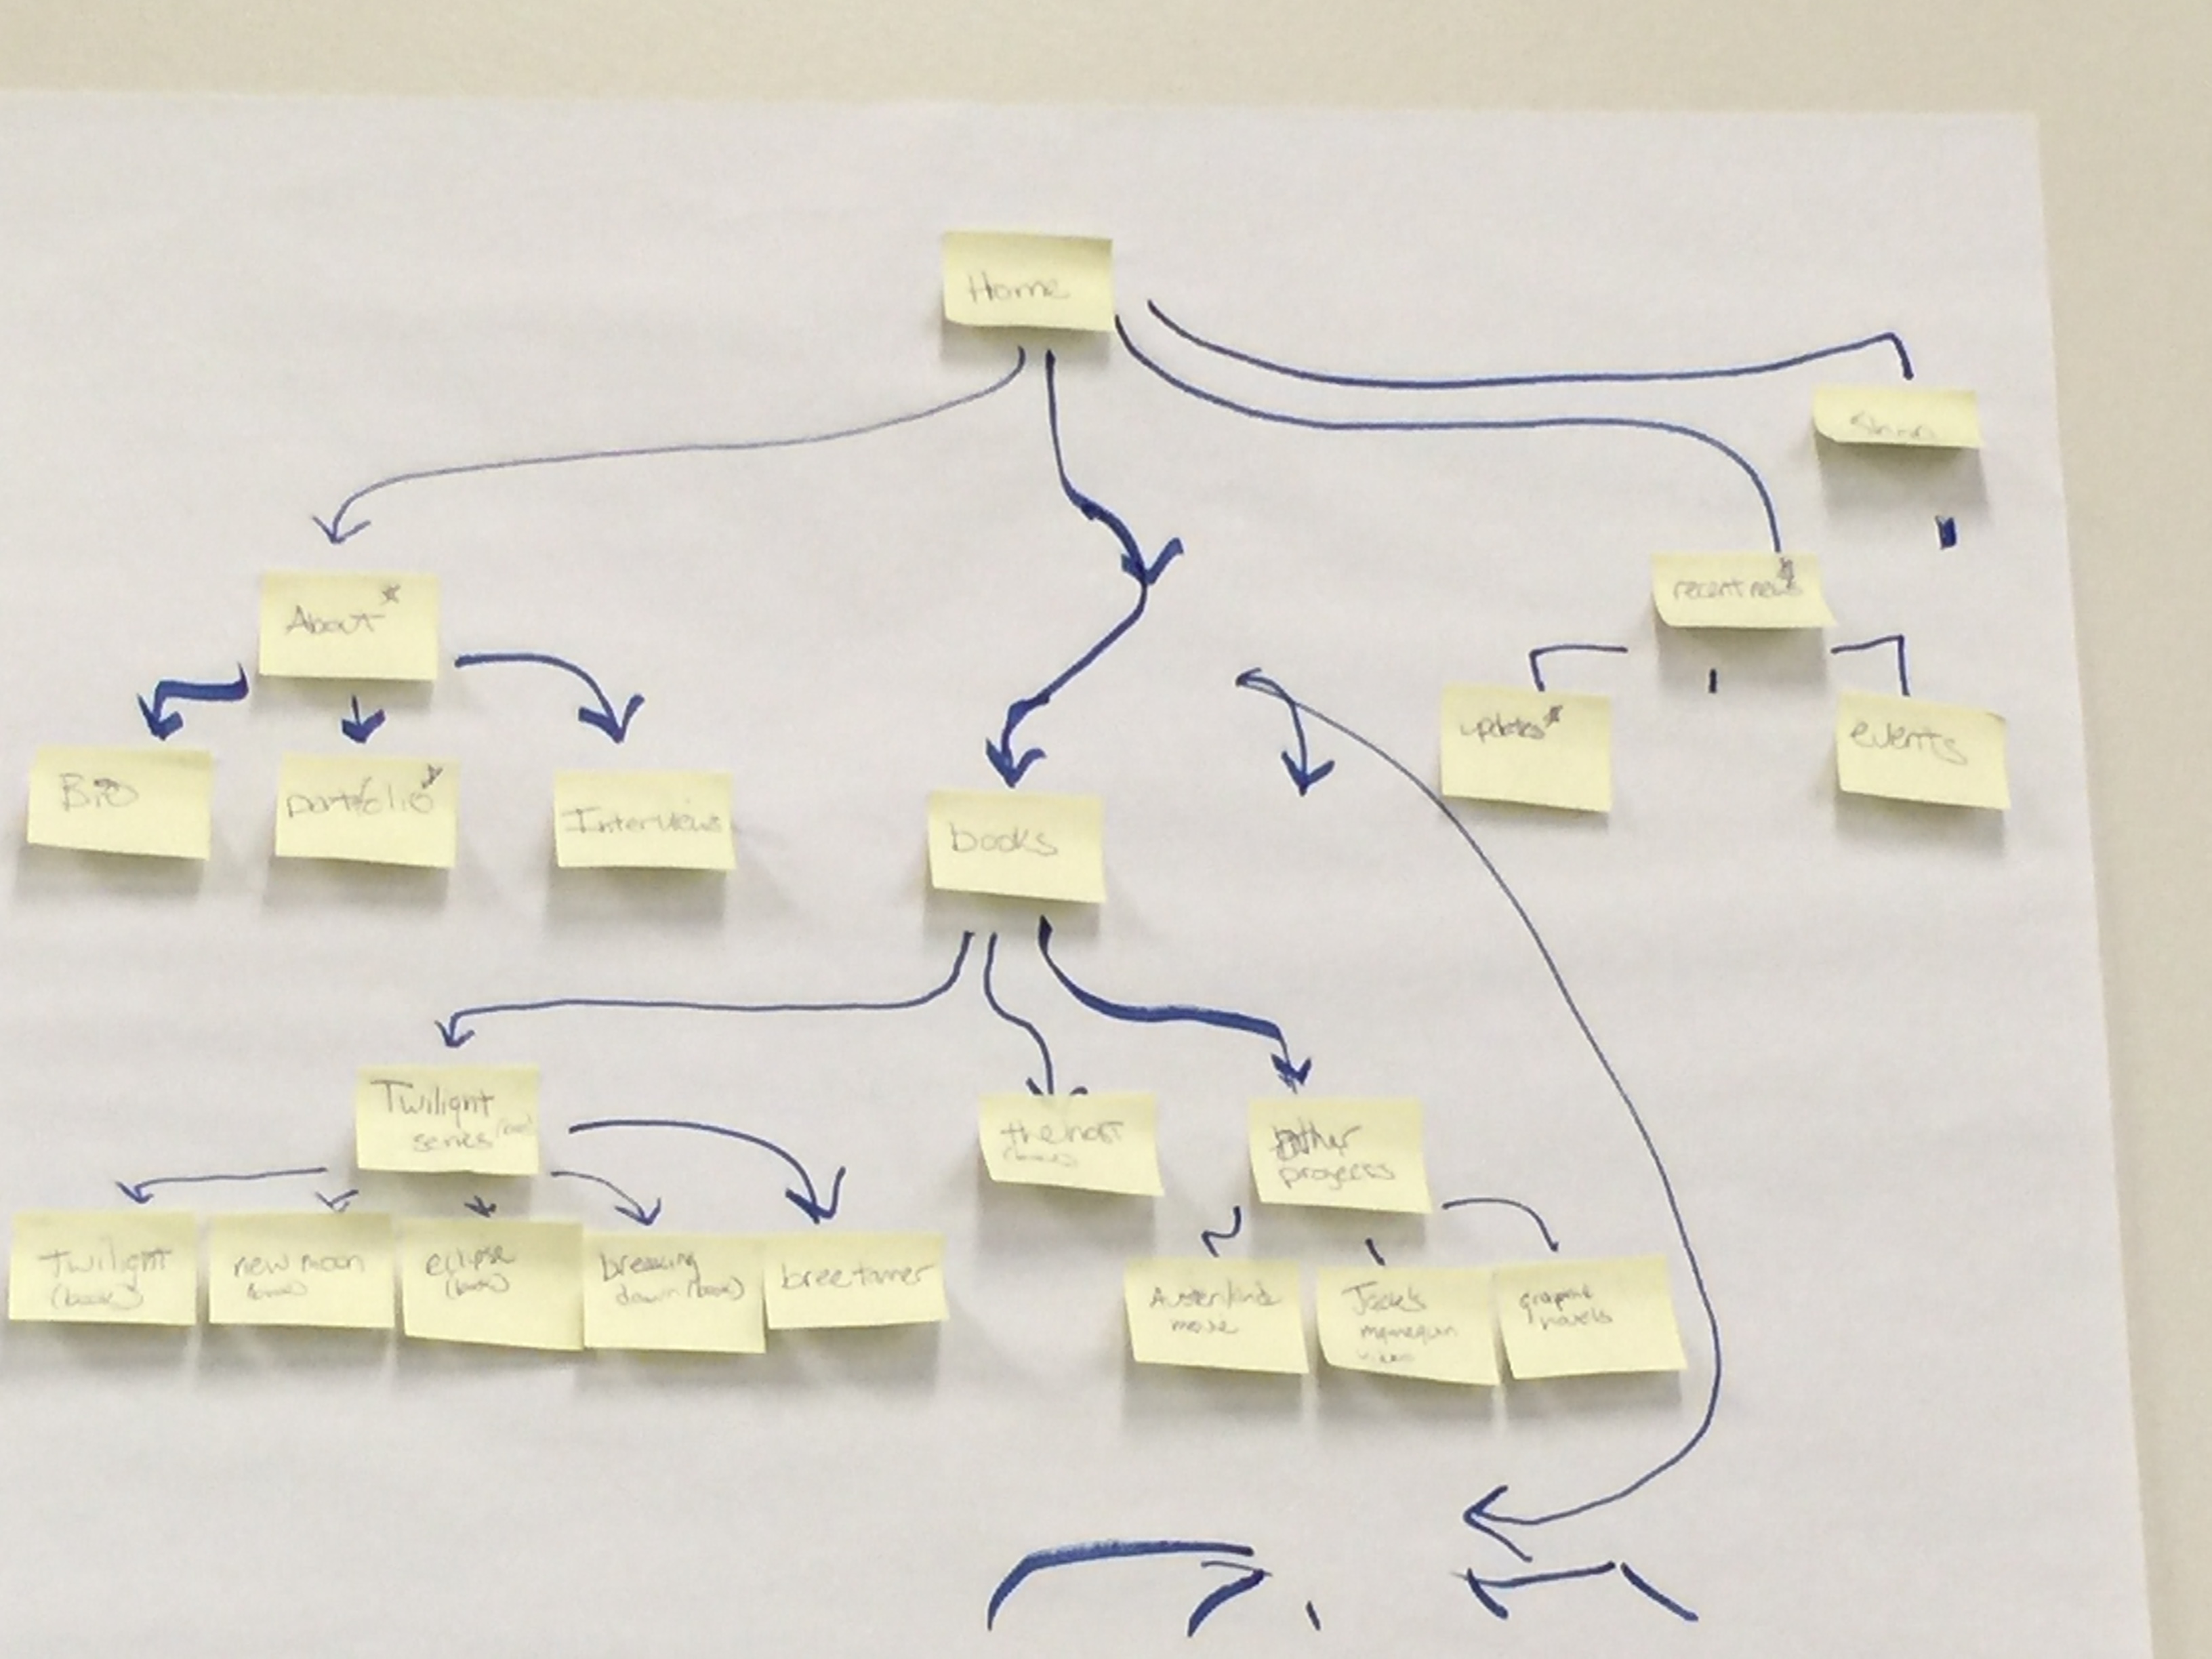 Home
About
recent news
updates
events
Bio
portfolio
Interviews
books
Twilight
series
the host
(book)
other
projects
Twilight
(book)
new moon
(book)
eclipse
(book)
breaking
down (book)
bree tanner
movie
Jack's
mannequin
video
graphic
novels